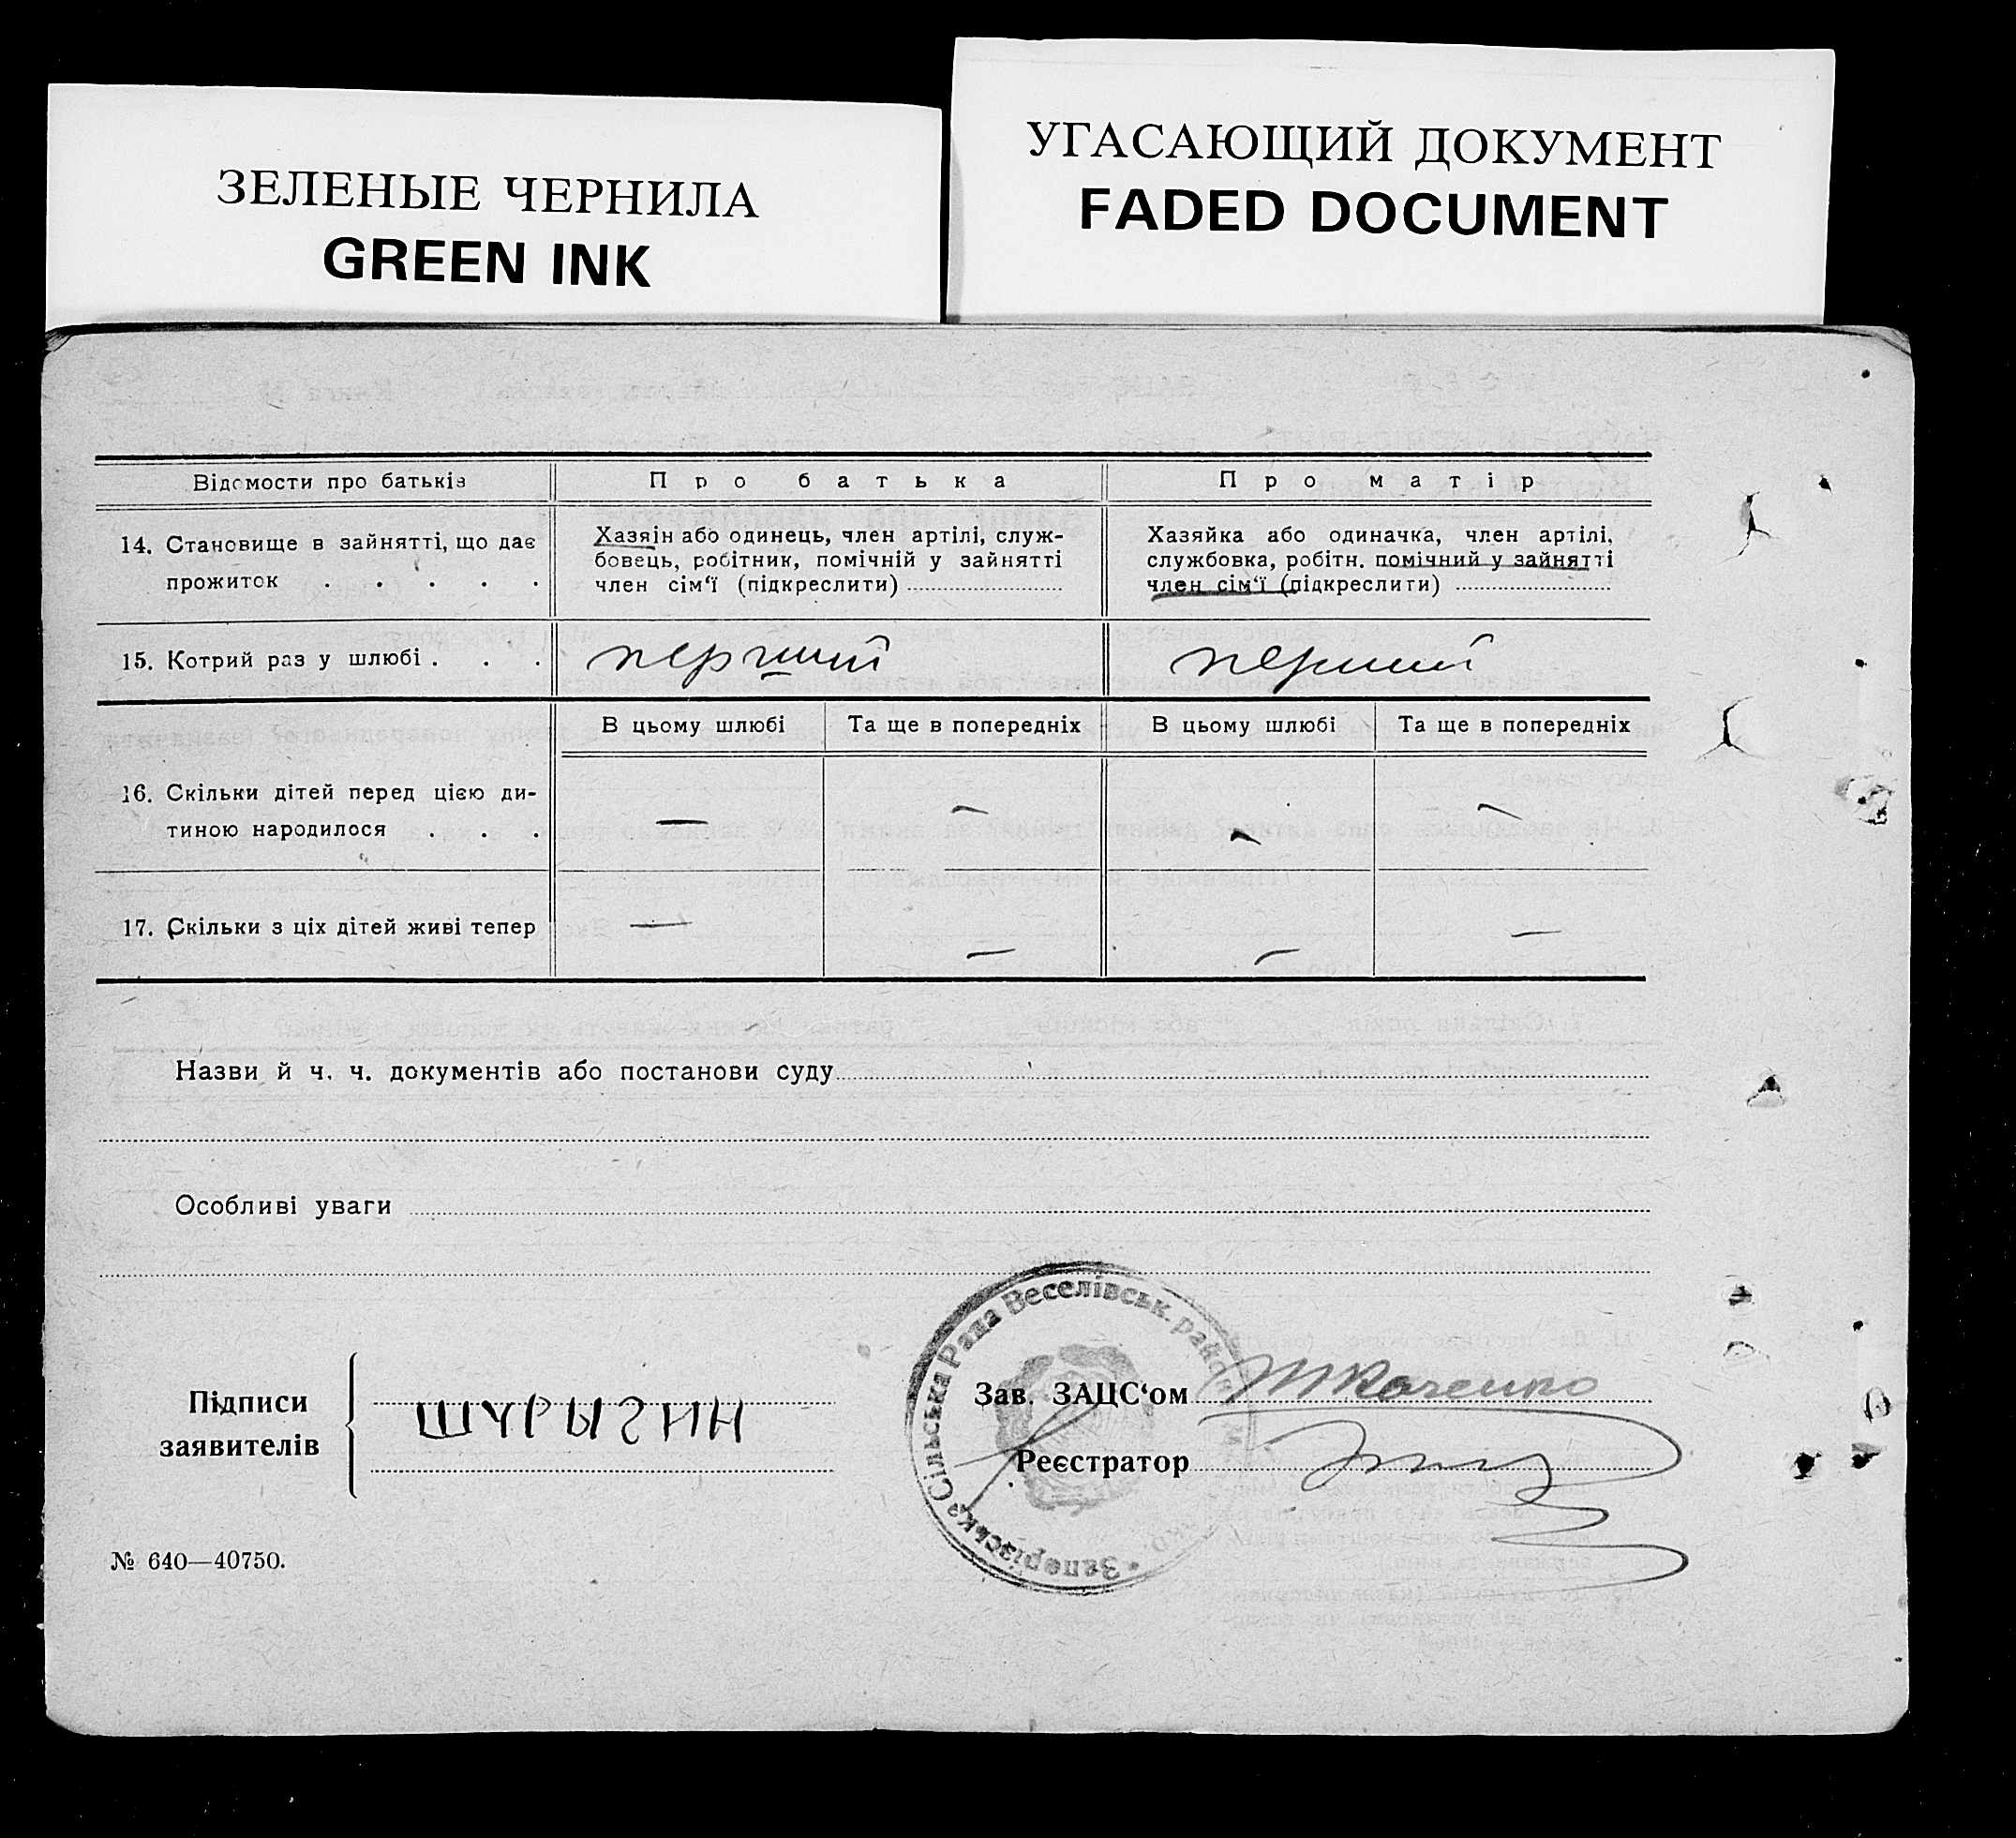 ЗЕЛЕНЫЕ ЧЕРНИЛА
GREEN INK
УГАСАЮЩИЙ ДОКУМЕНТ
FADED DOCUMENT
Відомости про батьків
Про батька
Про матір
14. Становище в зайнятті, що дає
прожиток . . . . .
Хазяїн або одинець, член артілі, служ-
бовець, робітник, помічній у зайнятті
член сім‘ї (підкреслити)
Хазяйка або одиначка, член артілі,
службовка, робітн. помічний у зайнятті
член сім‘ї (підкреслити)
15. Котрий раз у шлюбі . . .
перший
перший
В цьому шлюбі
Та ще в попередніх
В цьому шлюбі
Та ще в попередніх
16. Скільки дітей перед цією ди-
тиною народилося . . .
— — — —
17. Скільки з ціх дітей живі тепер
— — — —
Назви й ч. ч. документів або постанови суду
Особливі уваги
Підписи
заявителів
шурыгин
Зав. ЗАЦС‘ом Ткаченко
Реєстратор
Сільська Рада Веселівськ. району
№ 640—40750.